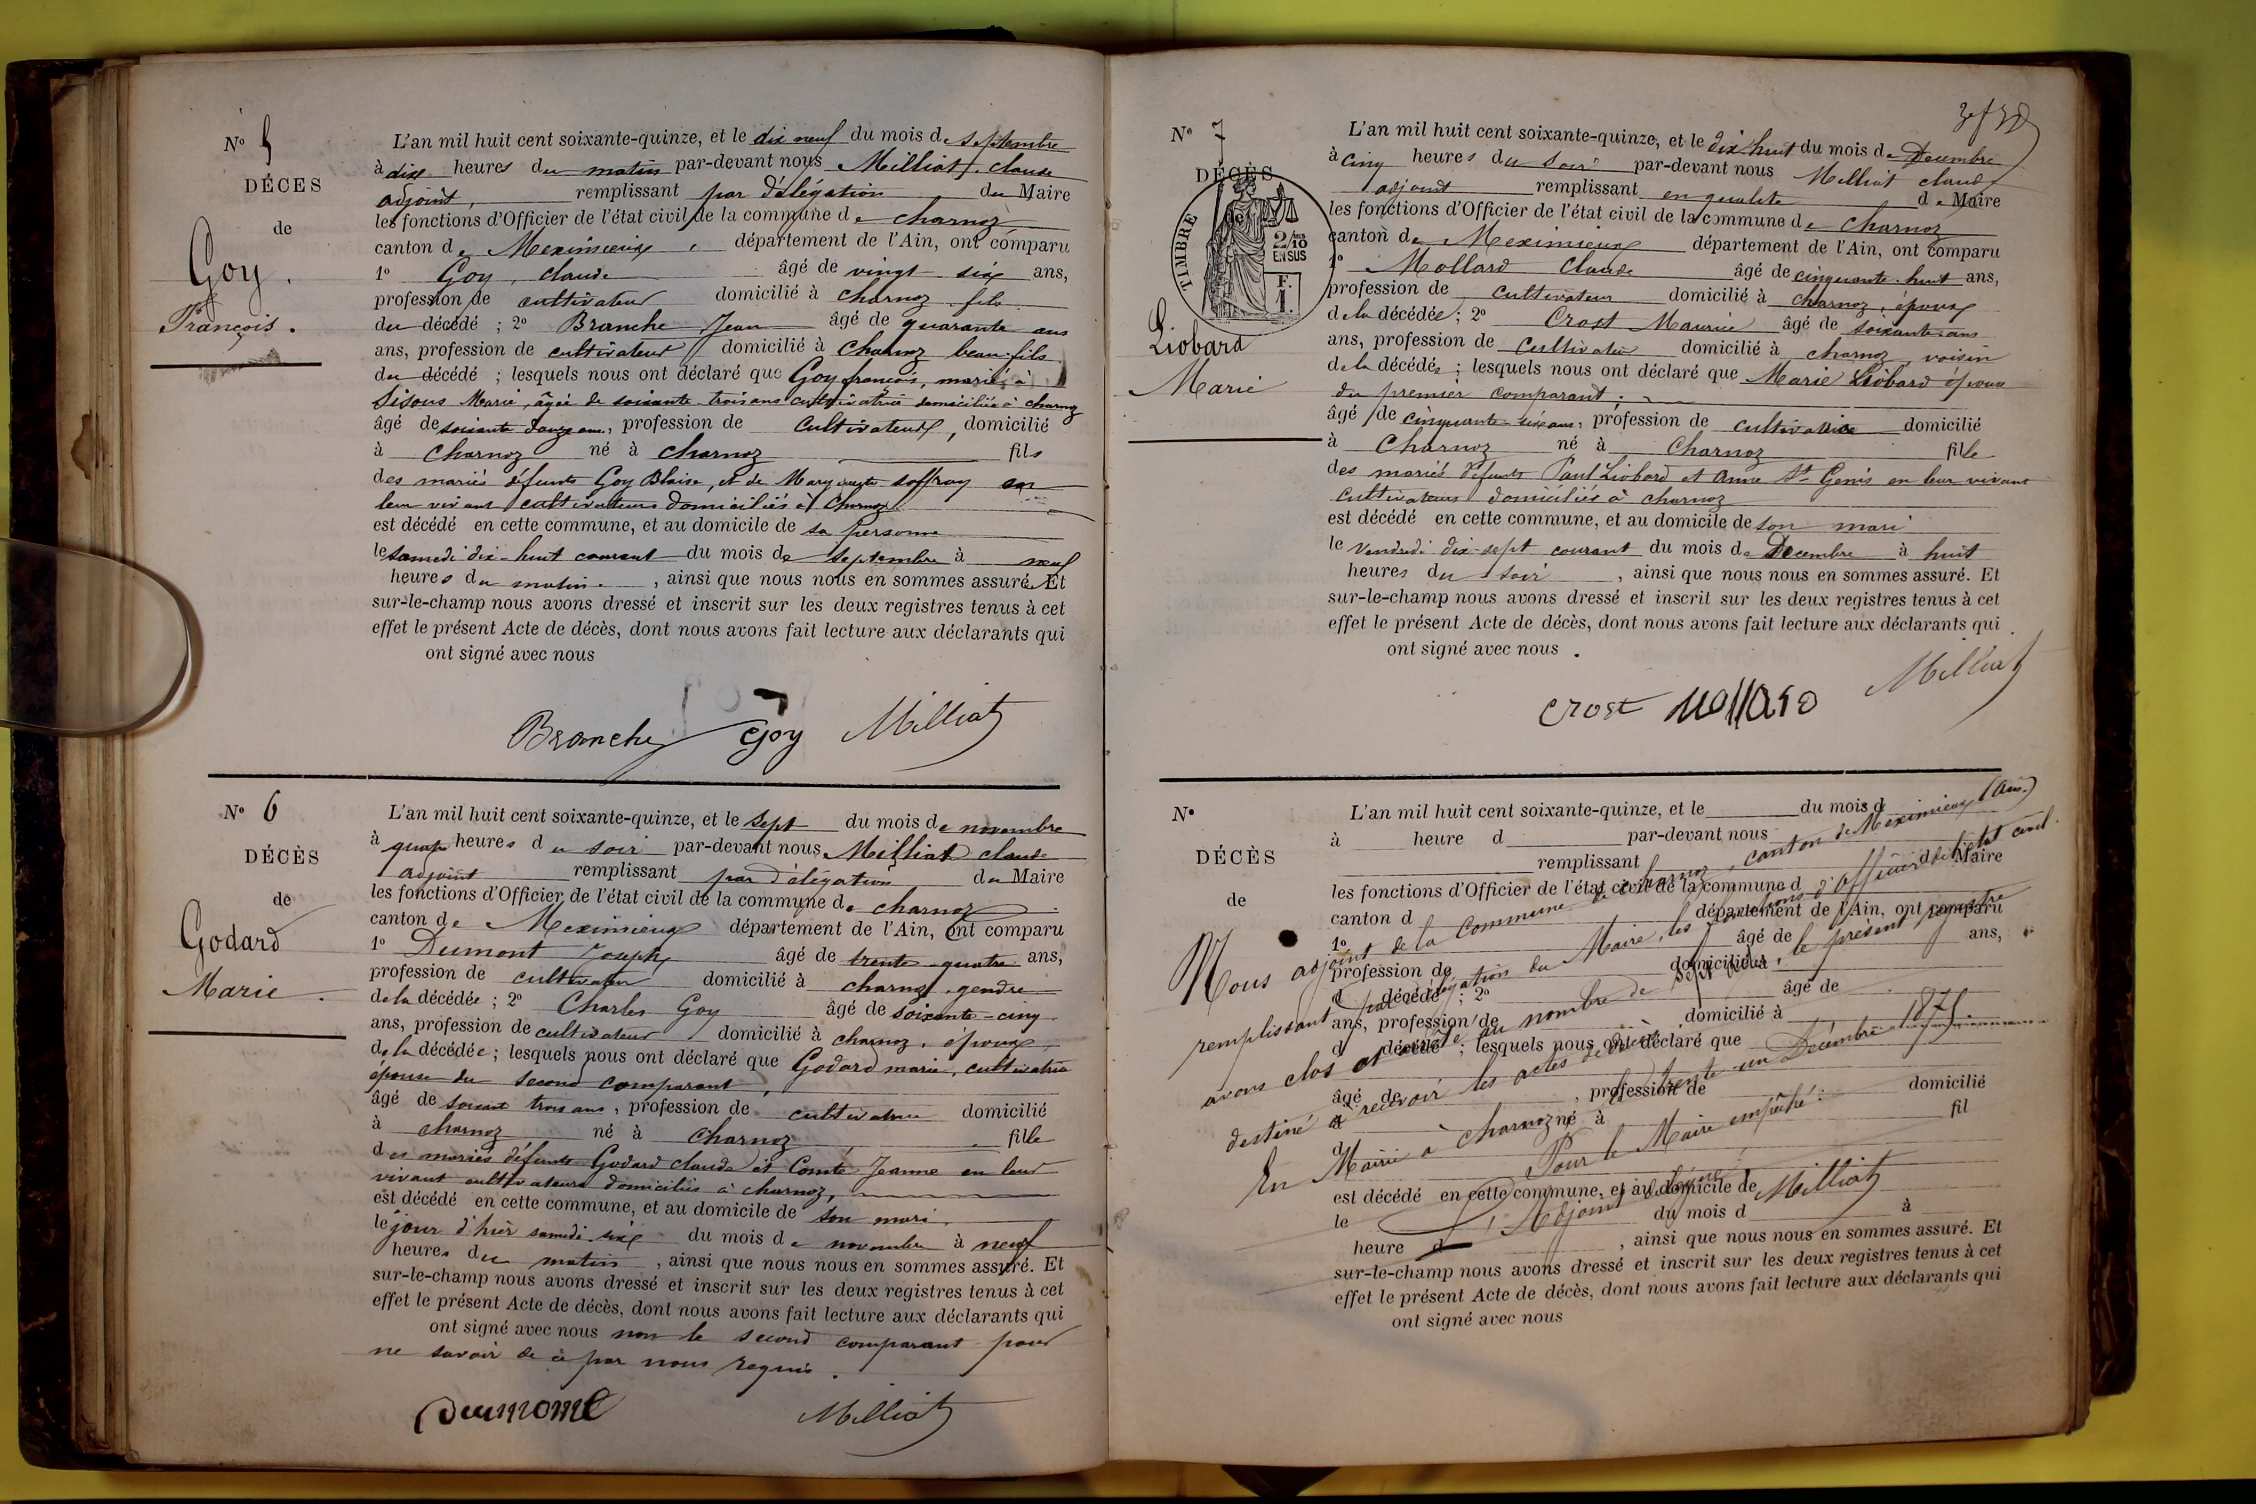 N° 5
DÉCES
de
Goy.
François.
L'an mil huit cent soixante-quinze, et le dix neuf du mois de septembre
à dix heures du matin par-devant nous Milliat, claude
adjoint, remplissant par délégation du Maire
les fonctions d'Officier de l'état civil de la commune de charnoz
canton de Meximieux, département de l'Ain, ont comparu
1° Goy, claude âgé de vingt six ans,
profession de cultivateur domicilié à charnoz fils
du décédé ; 2° Branche Jean âgé de quarante ans
ans, profession de cultivateur domicilié à Charnoz beau-fils
du décédé ; lesquels nous ont déclaré que Goy françois, marié, à
Sisous Marie, âgée de soixante trois ans cultivatrice domiciliée à charnoz
âgé de soixante douze ans, profession de Cultivateur, domicilié
à Charnoz né à Charnoz fils
des mariés défunts Goy Blaise, et de Marguerite soffray en
leur vivant cultivateurs domiciliés à Charnoz
est décédé en cette commune, et au domicile de sa personne
le samedi dix-huit courant du mois de septembre à neuf
heures du matin, ainsi que nous nous en sommes assuré. Et
sur-le-champ nous avons dressé et inscrit sur les deux registres tenus à cet
effet le présent Acte de décès, dont nous avons fait lecture aux déclarants qui
ont signé avec nous
Branche Goy Milliat
N° 6
DÉCÈS
de
Godard
Marie.
L'an mil huit cent soixante-quinze, et le sept du mois de novembre
à quatre heures du soir par-devant nous Milliat claude
adjoint remplissant par délégation du Maire
les fonctions d'Officier de l'état civil de la commune de charnoz
canton de Meximieux département de l'Ain, ont comparu
1° Dumont Joseph âgé de trente-quatre ans,
profession de cultivateur domicilié à charnoz, gendre
de la décédée ; 2° Charles Goy âgé de soixante-cinq
ans, profession de cultivateur domicilié à charnoz, époux
de la décédée ; lesquels nous ont déclaré que Godard marie, cultivatrice
épouse du second comparant,
âgé de soixante trois ans, profession de cultivatrice domicilié
à charnoz né à Charnoz fille
des mariés défunts Godard claude et Comte Jeanne en leur
vivant cultivateurs domiciliés à charnoz,
est décédé en cette commune, et au domicile de son mari.
le jour d'hier samedi six du mois de novembre à neuf
heures du matin, ainsi que nous nous en sommes assuré. Et
sur-le-champ nous avons dressé et inscrit sur les deux registres tenus à cet
effet le présent Acte de décès, dont nous avons fait lecture aux déclarants qui
ont signé avec nous non le second comparant pour
ne savoir de ce par nous requis.
Dumont Milliat
N° 7
DÉCÈS
de
TIMBRE
2/10
EN SUS
F.
1.
Liobard
Marie
L'an mil huit cent soixante-quinze, et le dix huit du mois de Decembre
à cinq heures du soir par-devant nous Milliat claude
adjoint remplissant en qualité de Maire
les fonctions d'Officier de l'état civil de la commune de Charnoz
canton de Meximieux département de l'Ain, ont comparu
1° Mollard Claude âgé de cinquante-huit ans,
profession de cultivateur domicilié à charnoz, époux
de la décédée ; 2° Crost Maurice âgé de soixante ans
ans, profession de cultivateur domicilié à charnoz, voisin
de la décédée ; lesquels nous ont déclaré que Marie Liobard épouse
du premier comparant.
âgé de cinquante-six ans, profession de cultivatrice domicilié
à Charnoz né à Charnoz fille
des mariés défunts Paul Liobard et Anne St Genis en leur vivant
cultivateurs domiciliés à charnoz
est décédé en cette commune, et au domicile de son mari
le vendredi dix-sept courant du mois de Decembre à huit
heures du soir, ainsi que nous nous en sommes assuré. Et
sur-le-champ nous avons dressé et inscrit sur les deux registres tenus à cet
effet le présent Acte de décès, dont nous avons fait lecture aux déclarants qui
ont signé avec nous.
Crost Mollard Milliat
N°
DÉCÈS
de
L'an mil huit cent soixante-quinze, et le du mois d
à heure d par-devant nous
remplissant d Maire
les fonctions d'Officier de l'état civil de la commune d
canton d département de l'Ain, ont comparu
1° âgé de ans,
profession de domicilié à
d décédé ; 2° âgé de
ans, profession de domicilié à
d décédé ; lesquels nous ont déclaré que
âgé de , profession de domicilié
à né à fil
d
est décédé en cette commune, et au domicile de
le du mois d à
heure d , ainsi que nous nous en sommes assuré. Et
sur-le-champ nous avons dressé et inscrit sur les deux registres tenus à cet
effet le présent Acte de décès, dont nous avons fait lecture aux déclarants qui
ont signé avec nous
Nous adjoint de la Commune de charnoz, canton de Meximieux (Ain)
remplissant par délégation du Maire, les fonctions d'officier de l'état civil.
avons clos et arrêté au nombre de sept actes, le présent registre
destiné à recevoir les actes de décès
En Mairie à Charnoz le trente un Décembre 1875.
Pour le Maire empêché :
L'Adjoint délégué
Milliat